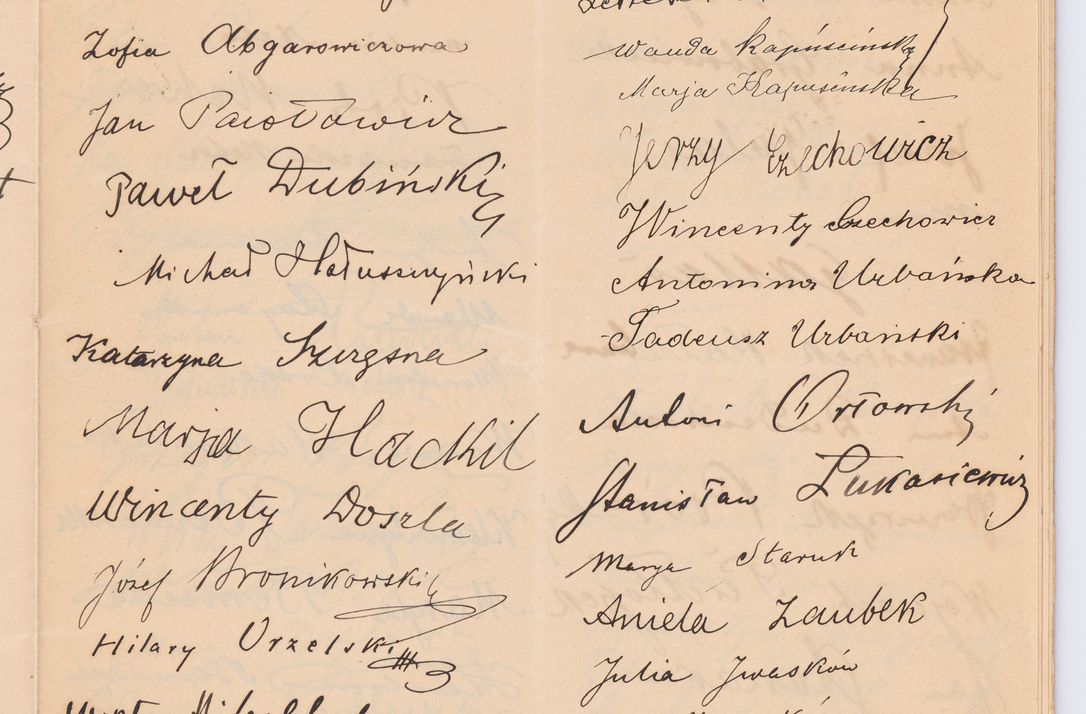 Zofia Abgarowiczowa
Jan Pawłowicz
Paweł Dubiński
Michał Hołuszczyński
Katarzyna
Marja Hackil
Wincenty Doszla
Józef Bronikowski
Hilary Orzelski
Wanda Kapuścińska
Marja Kapuścińska
Jerzy Czechowicz
Wincenty Czechowicz
Antonina Urbańska
Tadeusz Urbański
Antoni Orłowski
Stanisław Łukasiewicz
Marya Staruk
Aniela Zaubek
Julia Iwasków